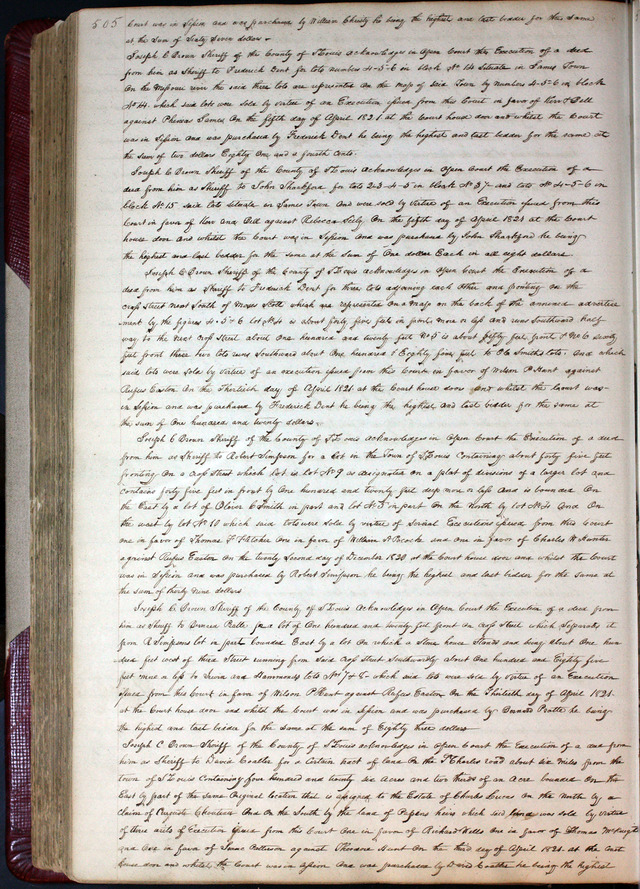 505
Court was in Session and was purchased by William Christy he being the highest and last bidder for the same
at the Sum of Sixty Seven dollars
Joseph C Brown Sheriff of the County of St Louis Acknowledges in Open Court the Execution of a deed
from him as Sheriff to Frederick Dent for lots numbers 4-5-6 in block No 14 Situate in James Town
On the Missouri river the said three lots are represented on the map of said Town by numbers 4-5-6 in block
No 14. which said lots were Sold by virtue of an Execution issued from this Court in favor of
against James On the fifth day of April 1821 at the Court house door and whilst the Court
was in Session and was purchased by Frederick Dent he being the highest and last bidder for the same at
the Sum of two dollars Eighty One and a fourth Cents.
Joseph C Brown Sheriff of the County of St Louis Acknowledges in Open Court the Execution of a
deed from him as Sheriff to John Shackford for lots 2-3-4-5 in block No 37 and lots No 4-5-6 in
block No 15 said lots Situate in James Town and were sold by virtue of an Execution issued from this
Court in favor of and against Rebecca On the fifth day of April 1821 at the Court
house door and whilst the Court was in Session and was purchased by John Shackford he being
the highest and last bidder for the same at the Sum of One dollar Each in all eight dollars
Joseph C Brown Sheriff of the County of St Louis acknowledges in Open Court the Execution of a
deed from him as Sheriff to Frederick Dent for three lots adjoining each other and fronting on the
cross Street next South of which are represented On a map on the back of the annexed advertise
ment by the figures 4.5 & 6 lot No 4 is about forty five feet in front more or less and runs Southward half
way to the next cross Street about One hundred and twenty feet No 5 is about fifty feet front & No 6 seventy
feet front these two lots runs Southward about One hundred & Eighty five feet to Smiths lots. And which
said lots were Sold by virtue of an execution issued from this Court in favor of Wilson P Hunt against
Rufus Easton On the Thirtieth day of April 1821 at the Court house door and whilst the Court was
in Session and was purchased by Frederick Dent he being the highest and last bidder for the same at
the sum of One hundred and twenty dollars
Joseph C Brown Sheriff of the County of St Louis acknowledges in Open Court the Execution of a deed
from him as Sheriff to Robert Simpson for a lot in the Town of St Louis Containing about forty five feet
fronting On a cross Street which lot is lot No 9 as designated on a plat of divisions of a larger lot and
contains forty five feet in front by One hundred and twenty feet deep more or less and is bounded On
the East by a lot of Oliver C Smith in part and lot No 5 in part On the North by lot No 4 And On
the west by lot No 10 which said lots were sold by virtue of Several Executions issued from this Court
one in favor of Thomas One in favor of William and One in favor of Charles W Hunter
against Rufus Easton On the twenty Second day of December 1820 at the Court house door and whilst the Court
was in Session and was purchased by Robert Simpson he being the highest and last bidder for the same at
the sum of thirty nine dollars
Joseph C Brown Sheriff of the County of St Louis Acknowledges in Open Court the Execution of a deed from
him as Sheriff to for a lot of One hundred and twenty feet front on cross Street which Separates it
from R Simpsons lot in part bounded East by a lot On which a Stone house Stands and being about One hun
dred feet west of third Street running from said cross Street Southwardly about One hundred and Eighty five
feet more or less to and Hammonds lots No 7 & 8 which said lots were sold by virtue of an Execution
issued from this Court in favor of Wilson P Hunt against Rufus Easton On the Thirtieth day of April 1821.
at the Court house door and whilst the Court was in Session and was purchased by Bernard Pratte he being
the highest and last bidder for the same at the sum of Eighty three dollars
Joseph C. Brown Sheriff of the County of St Louis acknowledges in Open Court the Execution of a deed from
him as Sheriff to David for a certain tract of land On the St Charles road about six Miles from the
Town of St Louis Containing four hundred and twenty six Acres and two thirds of an Acre bounded On the
East by part of the same Original location that is assigned to the Estate of Charles Lucas on the North by a
claim of Auguste Chouteau And On the South by the land of Papins heirs which said land was sold by virtue
of three writs of Execution issued from this Court One in favor of Richard One in favor of Thomas McKnight
and One in favor of against Theodore Hunt On the third day of April 1821. at the Court
house door and whilst the Court was in Session and was purchased by David he being the highest